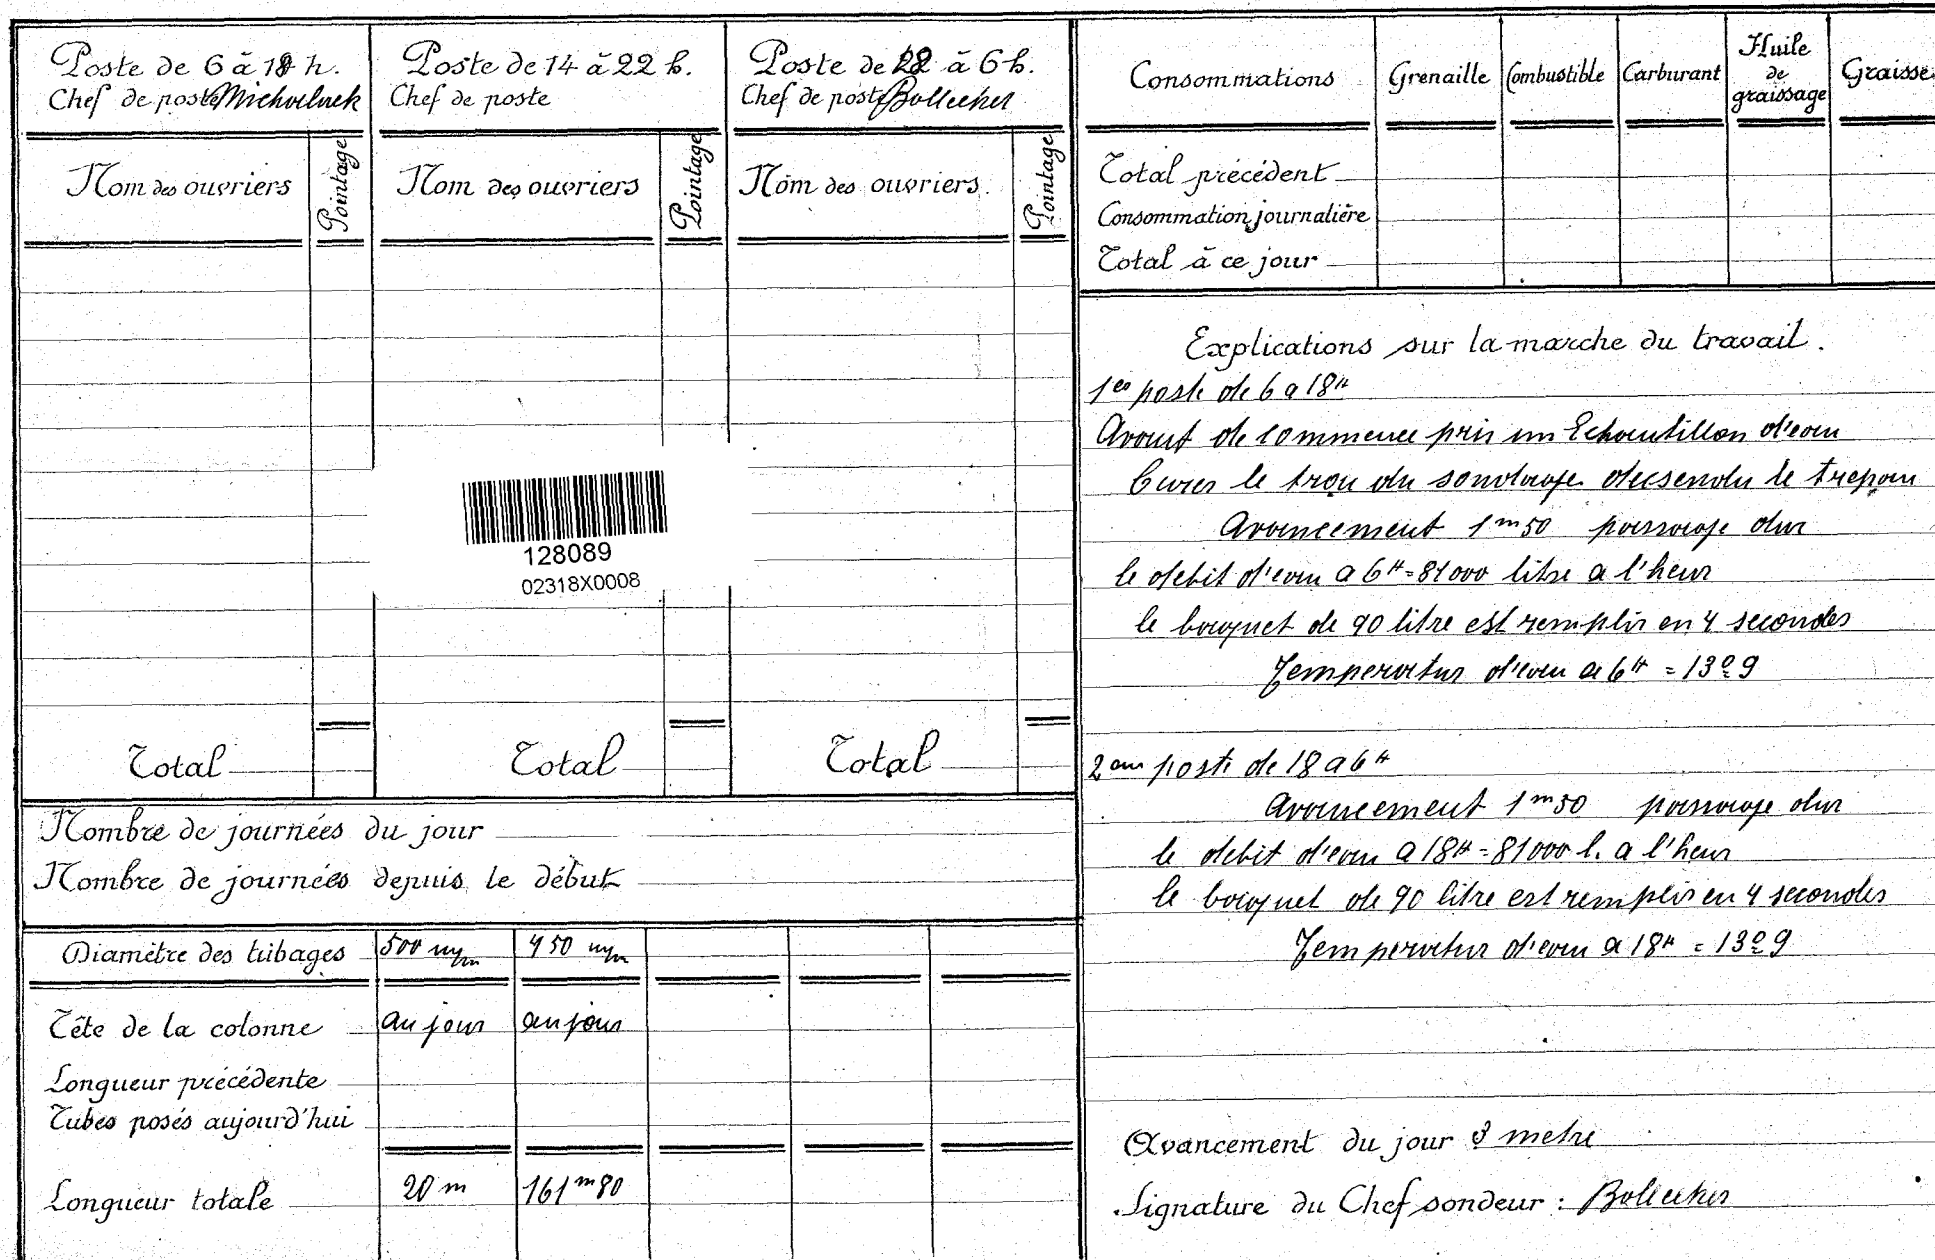 Poste de 6 à 18 h.
Chef de poste Michaelnek
Poste de 14 à 22 h.
Chef de poste
Poste de 18 à 6 h.
Chef de poste Bollecker
Nom des ouvriers
Pointage
Nom des ouvriers
Pointage
Nom des ouvriers
Pointage
128089
02318X0008
Total
Total
Total
Nombre de journées du jour
Nombre de journées depuis le début
Diamètre des tubages 500 m/m 450 m/m
Tête de la colonne au jour au jour
Longueur précédente
Tubes posés aujourd'hui
Longueur totale 20 m 161 m 80
Consommations Grenaille Combustible Carburant Huile de graissage Graisse
Total précédent
Consommation journalière
Total à ce jour
Explications sur la marche du travail.
1er poste de 6 a 18H
Avant de commence pris un Echantillon d'eau
Curer le trou du sondage decsendu le trepan
Avancement 1m50 passage dur
le debit d'eau a 6H = 81000 litre a l'heur
le baquet de 90 litre est remplir en 4 secondes
Temperatur d'eau a 6H = 13º9
2em poste de 18 a 6H
Avancement 1m50 passage dur
le debit d'eau a 18H = 81000 l. a l'heur
le baquet de 90 litre est remplir en 4 secondes
Temperatur d'eau a 18H = 13º9
Avancement du jour 3 metre
Signature du Chef sondeur : Bollecker